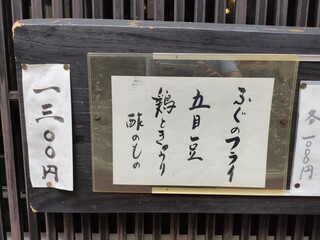 各一〇〇円
ふぐのフライ
五目豆
鶏ときゅうり
酢のもの
一三〇〇円